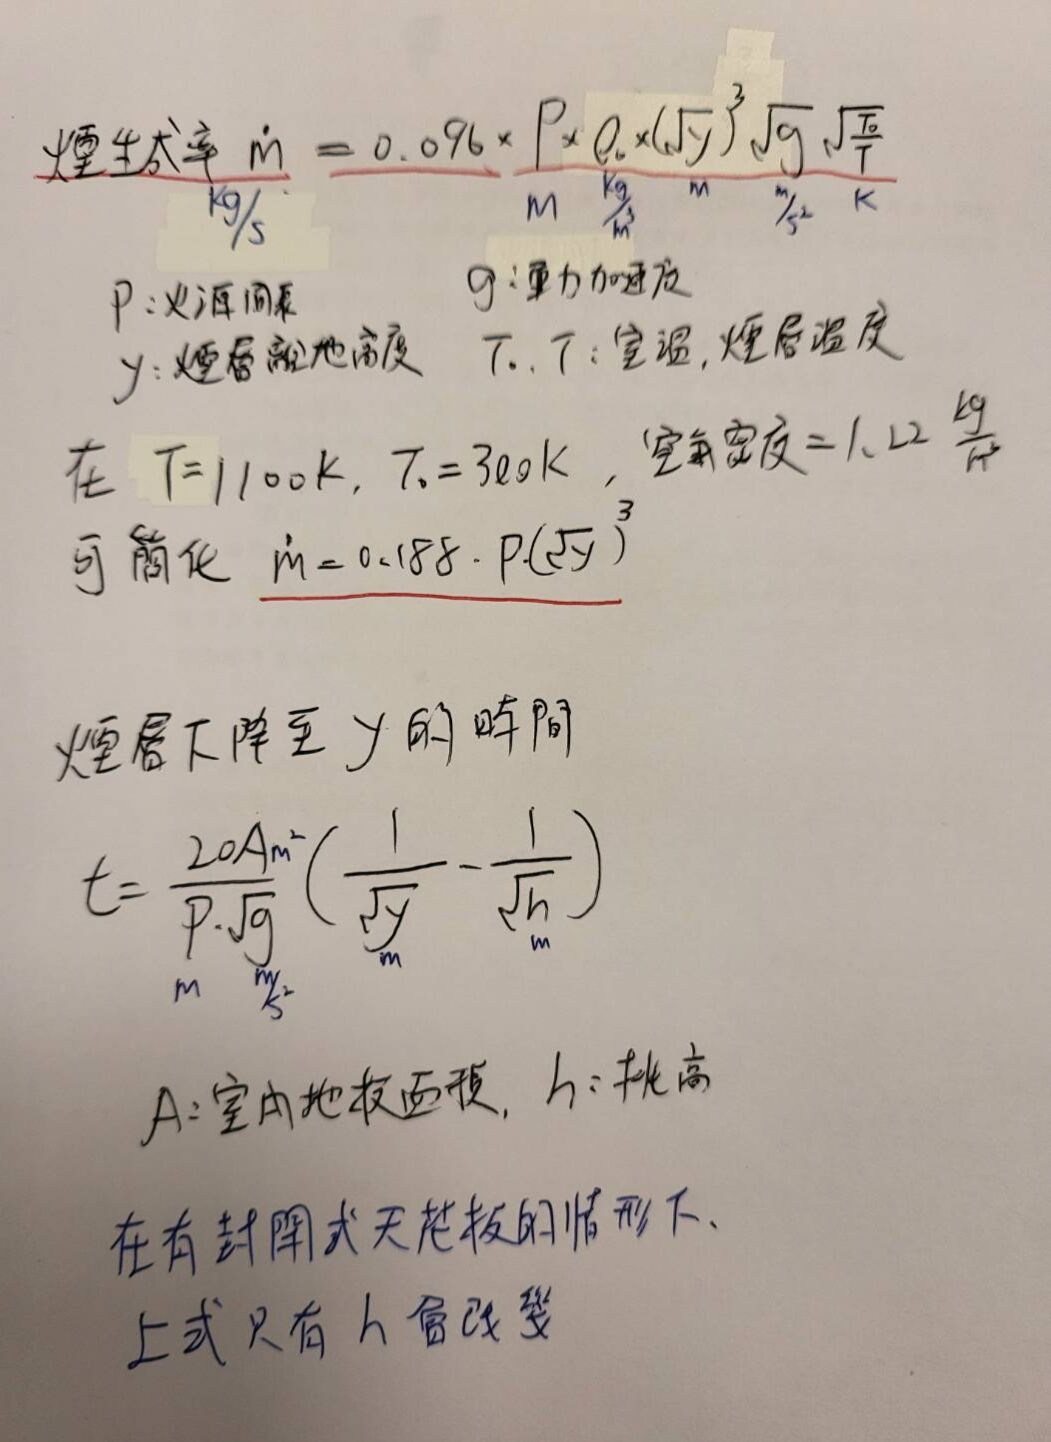 煙生成率 ṁ = 0.096 × P × ρ₀ × (√y)³ √g √(T₀/T)
kg/s M kg/m³ m m/s² K
P:火源周長 g:重力加速度
y:煙層離地高度 T₀、T:室溫,煙層溫度
在 T=1100K, T₀=300K, 空氣密度=1.22 kg/m³
可簡化 ṁ=0.188·P·(√y)³
煙層下降至 y 的時間
t = 20A m² / (P·√g) (1/√y − 1/√h)
M m/s² m m
A:室內地板面積, h:挑高
在有封閉式天花板的情形下、
上式只有 h 會改變